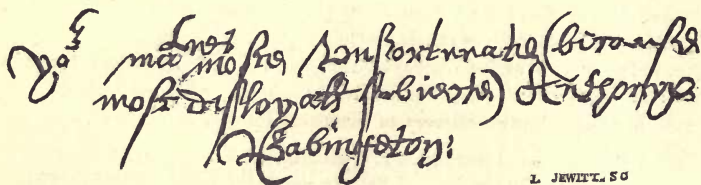 Yor maties moste Unfortunate (because
most disloyall subiecte) Anthonye
Babington:
L JEWITT. SC